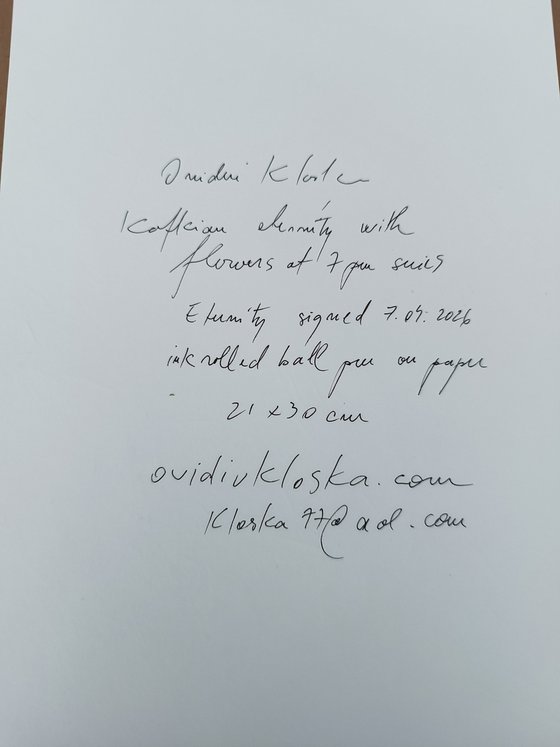 Ovidiu Kloska
Kafkian eternity with
flowers at 7 pm series
Eternity signed 7.04.2026
ink rolled ball pen on paper
21 x 30 cm
ovidiukloska.com
Kloska77@aol.com